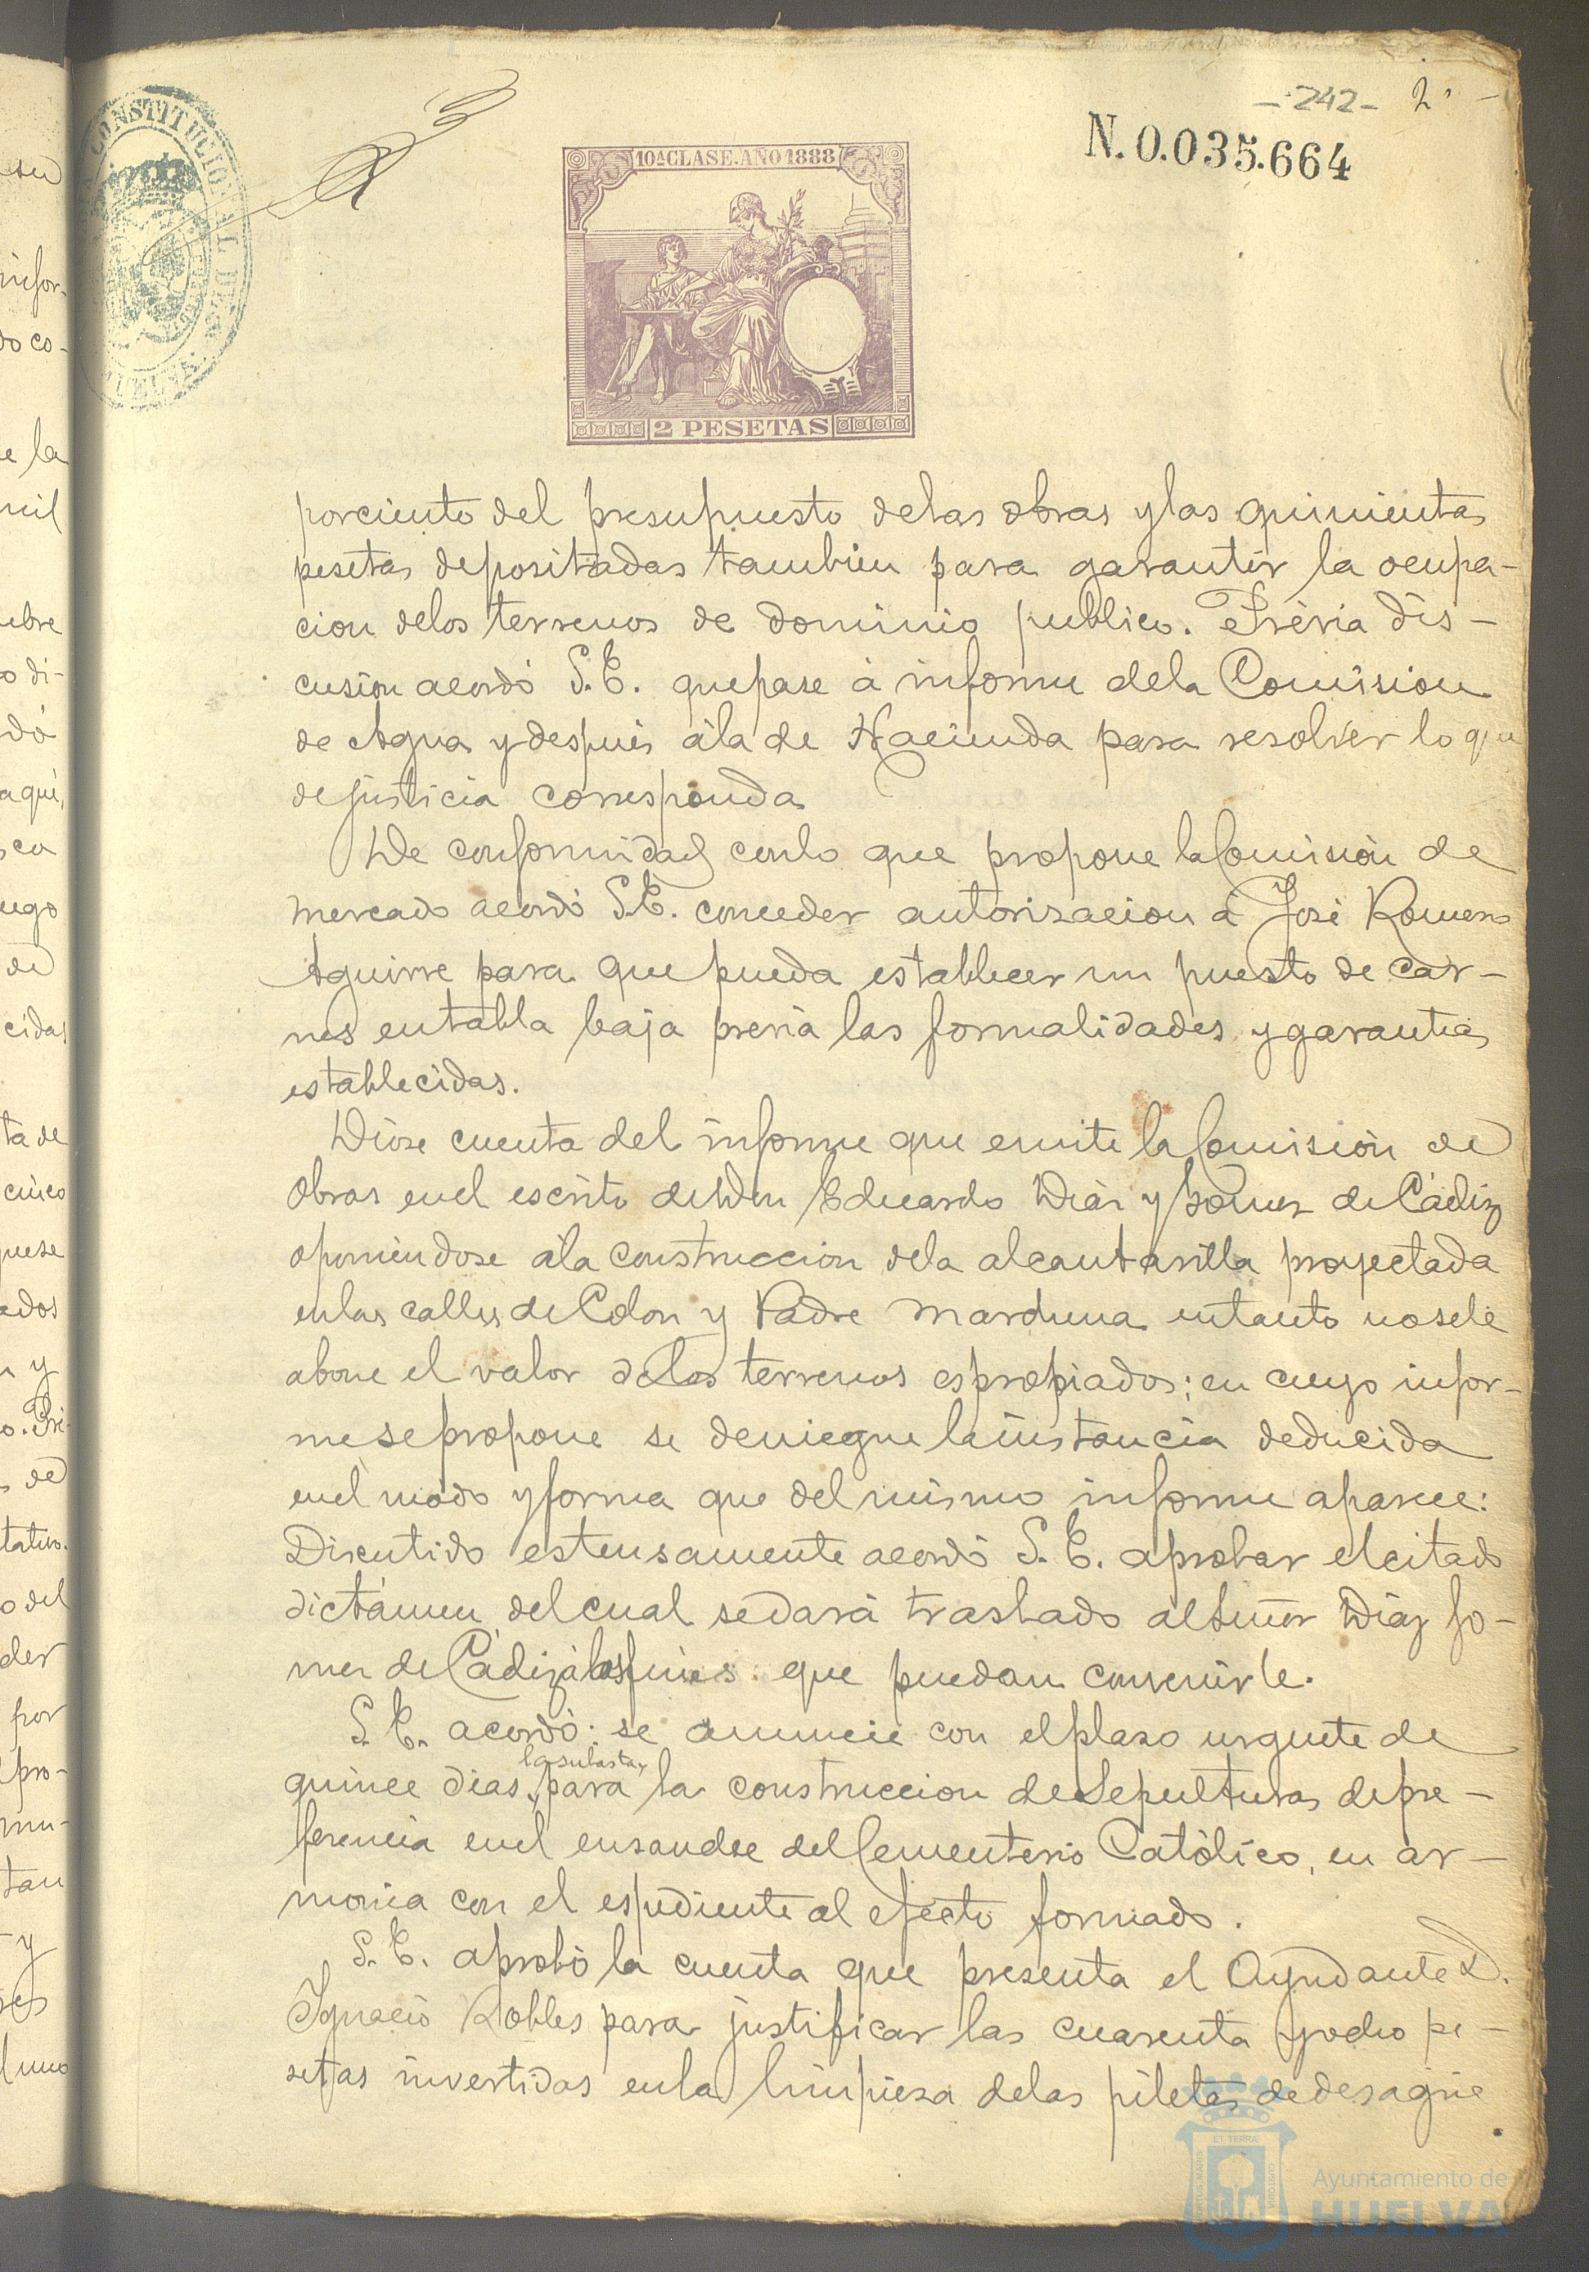 - 242 - 2
N. 0.035.664
CONSTITUCIONAL DE
HUELVA
10ª CLASE. AÑO 1888
2 PESETAS
porciento del presupuesto delas obras y las quinientas
pesetas depositadas tambien para garantir la ocupa-
cion delos terrenos de dominio publico. Prévia dis-
cusion acordó S.E. quepase á informe dela Comision
de Agua y despues ála de Hacienda para resolver lo que
dejusticia corresponda
De conformidad conlo que propone la Comisión de
mercado acordó S.E. conceder autorizacion á José Romero
Aguirre para que pueda establecer un puesto de car-
nes entabla baja previa las formalidades y garantias
establecidas.
Dióse cuenta del informe que emite la Comisión de
Obras enel escrito de Don Eduardo Diaz y Gomez de Cádiz
oponiendose ála construccion dela alcantarilla proyectada
enlas calles de Colon y Padre Marchena entanto nosele
abone el valor delos terrenos espropiados; en cuyo infor-
mesepropone se deniegue lainstancia deducida
enel modo y forma que del mismo informe aparece:
Discutido estensamente acordó S.E. aprobar elcitado
dictámen delcual sedará traslado alSeñor Diaz Go-
mez de Cádiz álosfines que puedan convenirle.
S.E. acordó: se anuncie con elplazo urgente de
la subasta
quince dias, para la construccion deSepulturas depre-
ferencia enel ensanche del Cementerio Católico, en ar-
monia con el espediente al efecto formado.
S.E. aprobó la cuenta que presenta el Ayudante D.
Ignacio Robles para justificar las cuarenta yocho pe-
setas invertidas enla limpieza delas piletas dedesagüe
Ayuntamiento de
HUELVA